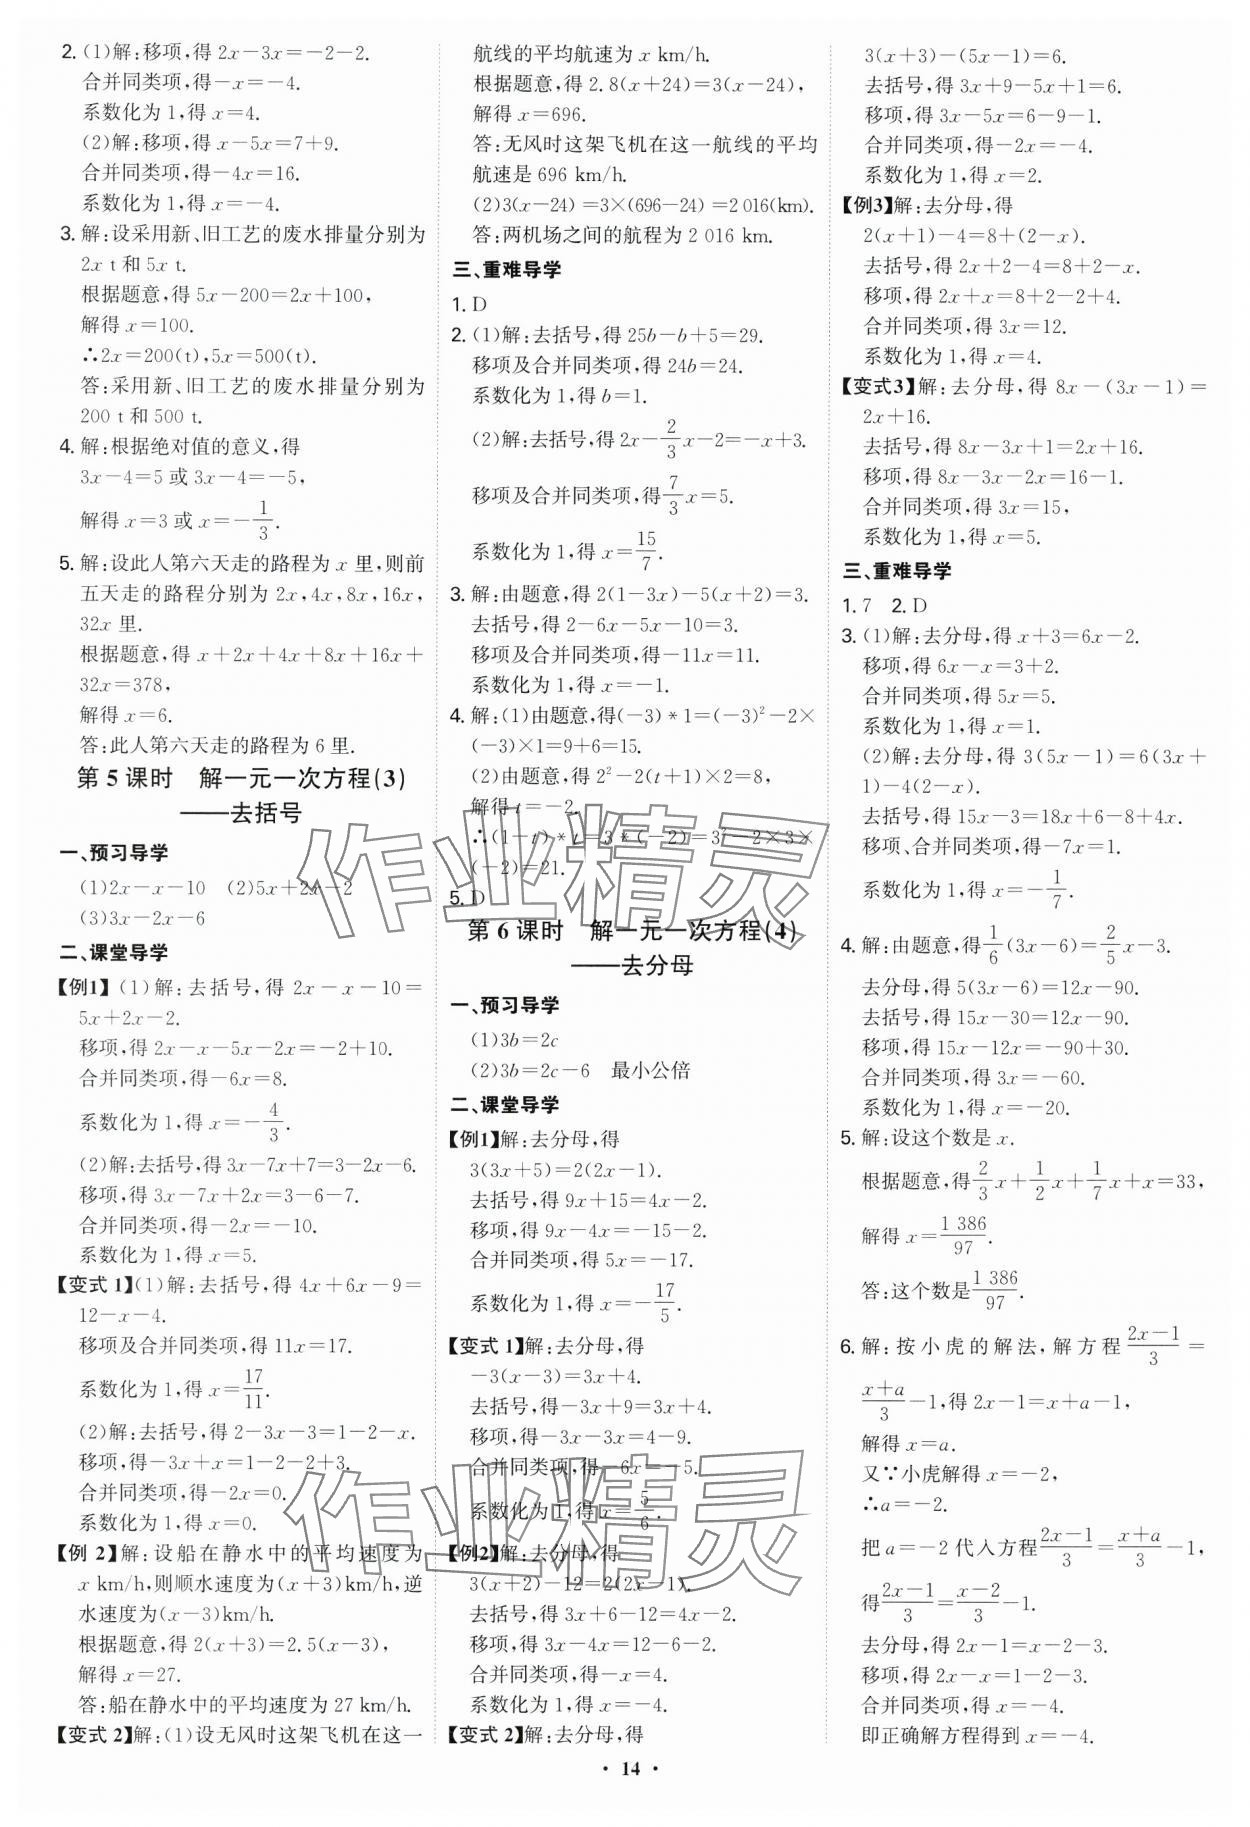 2. (1)解:移项,得 2x－3x＝－2－2.
合并同类项,得－x＝－4.
系数化为 1,得 x＝4.
(2)解:移项,得 x－5x＝7＋9.
合并同类项,得－4x＝16.
系数化为 1,得 x＝－4.
3. 解:设采用新、旧工艺的废水排量分别为
2x t 和 5x t.
根据题意,得 5x－200＝2x＋100,
解得 x＝100.
∴2x＝200(t),5x＝500(t).
答:采用新、旧工艺的废水排量分别为
200 t 和 500 t.
4. 解:根据绝对值的意义,得
3x－4＝5 或 3x－4＝－5,
解得 x＝3 或 x＝－1/3.
5. 解:设此人第六天走的路程为 x 里,则前
五天走的路程分别为 2x,4x,8x,16x,
32x 里.
根据题意,得 x＋2x＋4x＋8x＋16x＋
32x＝378,
解得 x＝6.
答:此人第六天走的路程为 6 里.
第 5 课时　解一元一次方程(3)
——去括号
一、预习导学
(1)2x－x－10　(2)5x＋2x－2
(3)3x－2x－6
二、课堂导学
【例1】(1)解:去括号,得 2x－x－10＝
5x＋2x－2.
移项,得 2x－x－5x－2x＝－2＋10.
合并同类项,得－6x＝8.
系数化为 1,得 x＝－4/3.
(2)解:去括号,得 3x－7x＋7＝3－2x－6.
移项,得 3x－7x＋2x＝3－6－7.
合并同类项,得－2x＝－10.
系数化为 1,得 x＝5.
【变式 1】(1)解:去括号,得 4x＋6x－9＝
12－x－4.
移项及合并同类项,得 11x＝17.
系数化为 1,得 x＝17/11.
(2)解:去括号,得 2－3x－3＝1－2－x.
移项,得－3x＋x＝1－2－2＋3.
合并同类项,得－2x＝0.
系数化为 1,得 x＝0.
【例 2】解:设船在静水中的平均速度为
x km/h,则顺水速度为(x＋3)km/h,逆
水速度为(x－3)km/h.
根据题意,得 2(x＋3)＝2.5(x－3),
解得 x＝27.
答:船在静水中的平均速度为 27 km/h.
【变式 2】解:(1)设无风时这架飞机在这一
航线的平均航速为 x km/h.
根据题意,得 2.8(x＋24)＝3(x－24),
解得 x＝696.
答:无风时这架飞机在这一航线的平均
航速是 696 km/h.
(2)3(x－24)＝3×(696－24)＝2 016(km).
答:两机场之间的航程为 2 016 km.
三、重难导学
1. D
2. (1)解:去括号,得 25b－b＋5＝29.
移项及合并同类项,得 24b＝24.
系数化为 1,得 b＝1.
(2)解:去括号,得 2x－2/3x－2＝－x＋3.
移项及合并同类项,得7/3x＝5.
系数化为 1,得 x＝15/7.
3. 解:由题意,得 2(1－3x)－5(x＋2)＝3.
去括号,得 2－6x－5x－10＝3.
移项及合并同类项,得－11x＝11.
系数化为 1,得 x＝－1.
4. 解:(1)由题意,得(－3)＊1＝(－3)²－2×
(－3)×1＝9＋6＝15.
(2)由题意,得 2²－2(t＋1)×2＝8,
解得 t＝－2.
∴(1－t)＊t＝3＊(－2)＝3²－2×3×
(－2)＝21.
5. D
第 6 课时　解一元一次方程(4)
——去分母
一、预习导学
(1)3b＝2c
(2)3b＝2c－6　最小公倍
二、课堂导学
【例1】解:去分母,得
3(3x＋5)＝2(2x－1).
去括号,得 9x＋15＝4x－2.
移项,得 9x－4x＝－15－2.
合并同类项,得 5x＝－17.
系数化为 1,得 x＝－17/5.
【变式 1】解:去分母,得
－3(x－3)＝3x＋4.
去括号,得－3x＋9＝3x＋4.
移项,得－3x－3x＝4－9.
合并同类项,得－6x＝－5.
系数化为 1,得 x＝5/6.
【例2】解:去分母,得
3(x＋2)－12＝2(2x－1).
去括号,得 3x＋6－12＝4x－2.
移项,得 3x－4x＝12－6－2.
合并同类项,得－x＝4.
系数化为 1,得 x＝－4.
【变式 2】解:去分母,得
3(x＋3)－(5x－1)＝6.
去括号,得 3x＋9－5x＋1＝6.
移项,得 3x－5x＝6－9－1.
合并同类项,得－2x＝－4.
系数化为 1,得 x＝2.
【例3】解:去分母,得
2(x＋1)－4＝8＋(2－x).
去括号,得 2x＋2－4＝8＋2－x.
移项,得 2x＋x＝8＋2－2＋4.
合并同类项,得 3x＝12.
系数化为 1,得 x＝4.
【变式3】解:去分母,得 8x－(3x－1)＝
2x＋16.
去括号,得 8x－3x＋1＝2x＋16.
移项,得 8x－3x－2x＝16－1.
合并同类项,得 3x＝15,
系数化为 1,得 x＝5.
三、重难导学
1. 7　2. D
3. (1)解:去分母,得 x＋3＝6x－2.
移项,得 6x－x＝3＋2.
合并同类项,得 5x＝5.
系数化为 1,得 x＝1.
(2)解:去分母,得 3(5x－1)＝6(3x＋
1)－4(2－x).
去括号,得 15x－3＝18x＋6－8＋4x.
移项、合并同类项,得－7x＝1.
系数化为 1,得 x＝－1/7.
4. 解:由题意,得1/6(3x－6)＝2/5x－3.
去分母,得 5(3x－6)＝12x－90.
去括号,得 15x－30＝12x－90.
移项,得 15x－12x＝－90＋30.
合并同类项,得 3x＝－60.
系数化为 1,得 x＝－20.
5. 解:设这个数是 x.
根据题意,得2/3x＋1/2x＋1/7x＋x＝33,
解得 x＝1 386/97.
答:这个数是1 386/97.
6. 解:按小虎的解法,解方程(2x－1)/3＝
(x＋a)/3－1,得 2x－1＝x＋a－1,
解得 x＝a.
又∵小虎解得 x＝－2,
∴a＝－2.
把 a＝－2 代入方程(2x－1)/3＝(x＋a)/3－1,
得(2x－1)/3＝(x－2)/3－1.
去分母,得 2x－1＝x－2－3.
移项,得 2x－x＝1－2－3.
合并同类项,得 x＝－4.
即正确解方程得到 x＝－4.
· 14 ·
作业精灵
作业精灵